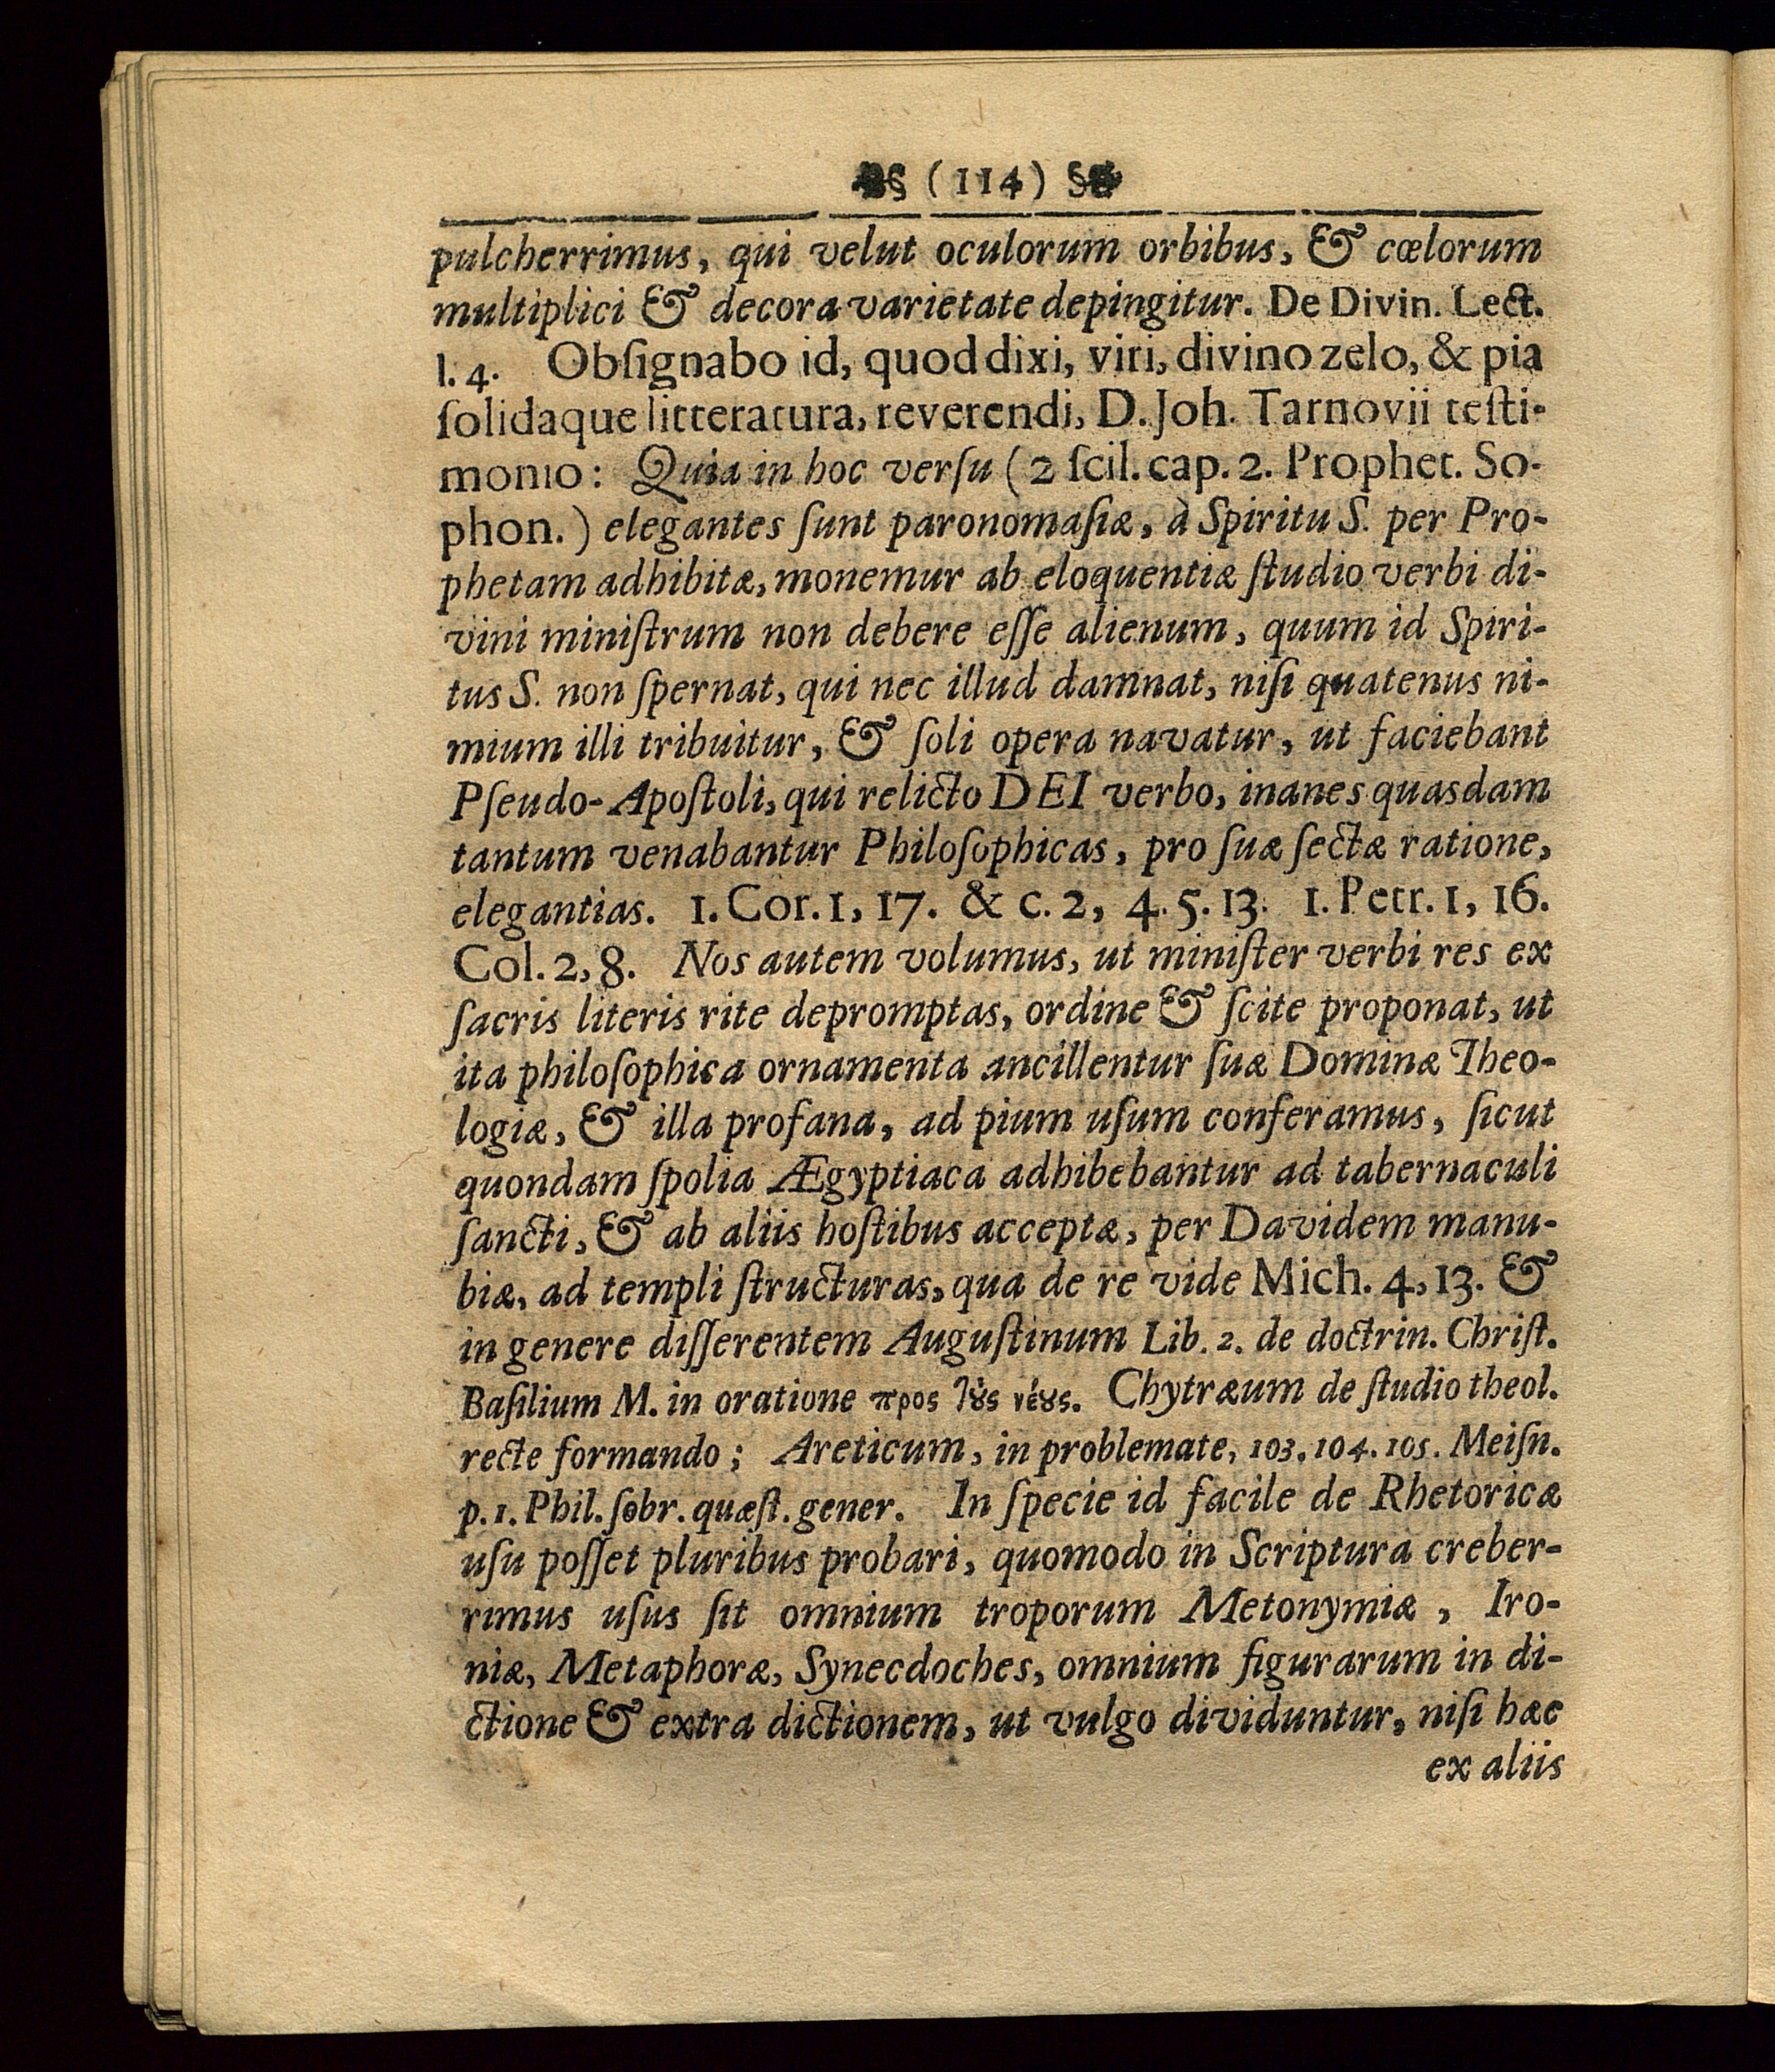 (114)
pulcherrimus, qui velut oculorum orbibus, & cœlorum
multiplici & decora varietate depingitur. De Divin. Lect.
l. 4. Obſignabo id, quod dixi, viri, divino zelo, & pia
ſolidaque litteratura, reverendi, D. Joh. Tarnovii teſti-
monio: Quia in hoc verſu (2 ſcil. cap. 2. Prophet. So-
phon.) elegantes ſunt paronomaſiæ, à Spiritu S. per Pro-
phetam adhibitæ, monemur ab eloquentiæ ſtudio verbi di-
vini miniſtrum non debere eſſe alienum, quum id Spiri-
tus S. non ſpernat, qui nec illud damnat, niſi quatenus ni-
mium illi tribuitur, & ſoli opera navatur, ut faciebant
Pſeudo-Apoſtoli, qui relicto DEI verbo, inanes quasdam
tantum venabantur Philoſophicas, pro ſuæ ſectæ ratione,
elegantias. 1. Cor. 1, 17. & c. 2, 4. 5. 13. 1. Petr. 1, 16.
Col. 2, 8. Nos autem volumus, ut miniſter verbi res ex
ſacris literis rite depromptas, ordine & ſcite proponat, ut
ita philoſophica ornamenta ancillentur ſuæ Dominæ Theo-
logiæ, & illa profana, ad pium uſum conferamus, ſicut
quondam ſpolia Ægyptiaca adhibebantur ad tabernaculi
ſancti, & ab aliis hoſtibus acceptæ, per Davidem manu-
biæ, ad templi ſtructuras, qua de re vide Mich. 4, 13. &
in genere diſſerentem Auguſtinum Lib. 2. de doctrin. Chriſt.
Baſilium M. in oratione προς τȣ̀ς νέȣς. Chytræum de ſtudio theol.
recte formando; Areticum, in problemate, 103. 104. 105. Meiſn.
p. 1. Phil. ſobr. quæſt. gener. In ſpecie id facile de Rhetoricæ
uſu poſſet pluribus probari, quomodo in Scriptura creber-
rimus uſus ſit omnium troporum Metonymiæ, Iro-
niæ, Metaphoræ, Synecdoches, omnium figurarum in di-
ctione & extra dictionem, ut vulgo dividuntur, niſi hæc
ex aliis